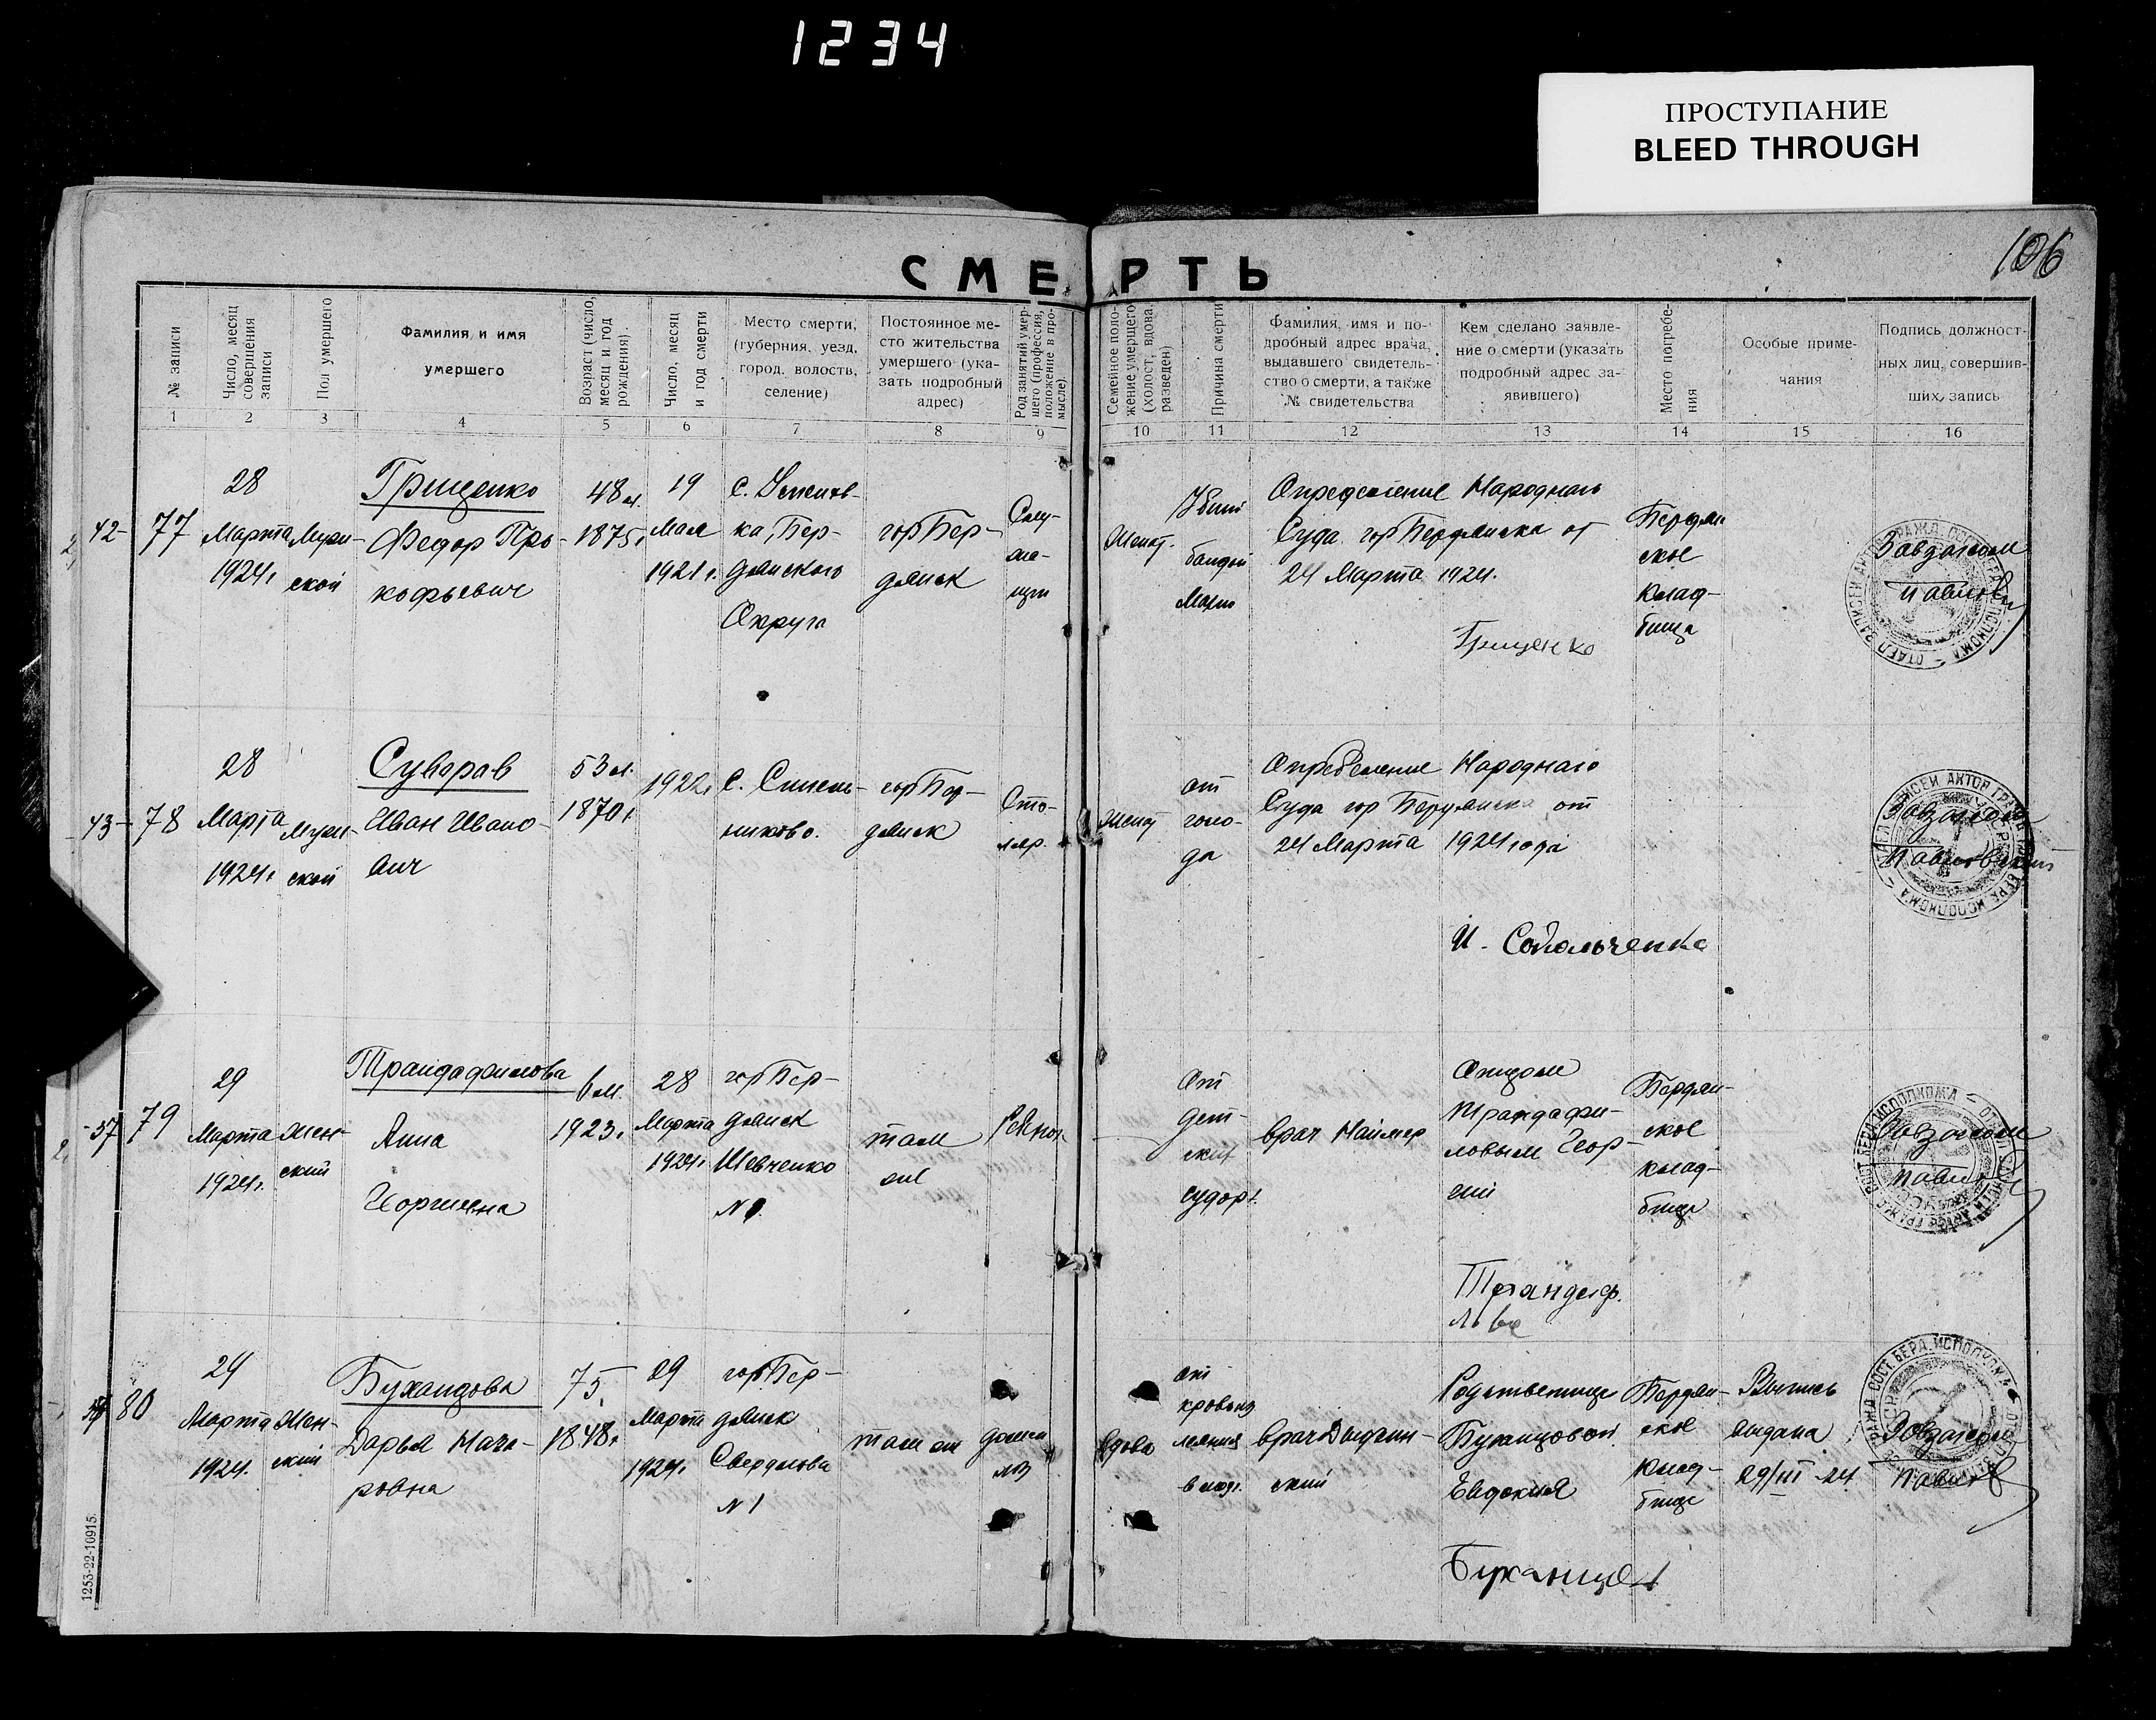 1234
ПРОСТУПАНИЕ
BLEED THROUGH
106
СМЕРТЬ
№ записи
Число, месяц совершения записи
Пол умершего
Фамилия и имя
умершего
Возраст (число, месяц и год рождения).
Число, месяц и год смерти
Место смерти,
(губерния, уезд,
город, волость,
селение)
Постоянное ме-
сто жительства
умершего (ука-
зать подробный
адрес)
Род занятий умер-
шего (профессия,
положение в про-
мысле)
Семейное поло-
жение умершего
(холост, вдова,
разведен)
Причина смерти
Фамилия, имя и по-
дробный адрес врача,
выдавшего свидетель-
ство о смерти, а также
№ свидетельства
Кем сделано заявле-
ние о смерти (указать
подробный адрес за-
явившего)
Место погребе-
ния
Особые приме-
чания
Подпись должност-
ных лиц, совершив-
ших запись
1 2 3 4 5 6 7 8 9 10 11 12 13 14 15 16
42-
77
28
Марта
1924г
Муж-
ской
Грищенко
Федор Про-
кофьевич
48 л.
1875г
19
Мая
1921 г.
ка, Бер-
дянского
Округа
гор Бер-
дянск
Слу-
жа-
щий
Женат.
Убит
бандой
Махно
Определение Народного
Суда гор Бердянска от
24 Марта 1924.
Грищенко
Бердян-
ское
клад-
бище
Завзагсом
43-
78
28
Марта
1924г
Муж-
ской
Суваров
Иван Ивано-
вич
53 л.
1870г
1922г
С. Синель-
никово.
гор Бер-
дянск
Сто-
ляр.
Женат
от
голо-
да
Определение Народнаго
Суда гор Бердянска от
24 Марта 1924 года
И. Собольченко
Завзагсом
57
79
29
Марта
1924г.
Жен-
ский
Трандафилова
Анна
Георгиевна
6 м.
1923г
28
Марта
1924г
гор Бер-
дянск
Шевченко
там
же
Ребенок
От
дет-
ских
судорг.
врач Наймер
Отцом
Трандафи-
ловым Геор-
гий
Бердян-
ское
клад-
бище
Завзагсом
80
29
Марта
1924.
Жен-
ский
Буханцова
Дарья Мака-
ровна
75
1848г
29
Марта
1924г
гор Бер-
дянск
Свердлова
N 1
там же
вдова
от
кровоиз
лияния
в мозг.
Родственница
Буханцовой
Евдокия
Буханцова
Бердян-
ское
клад-
бище
Выпись
выдана
29/III-24
Завзагсом
1253-22-10915.